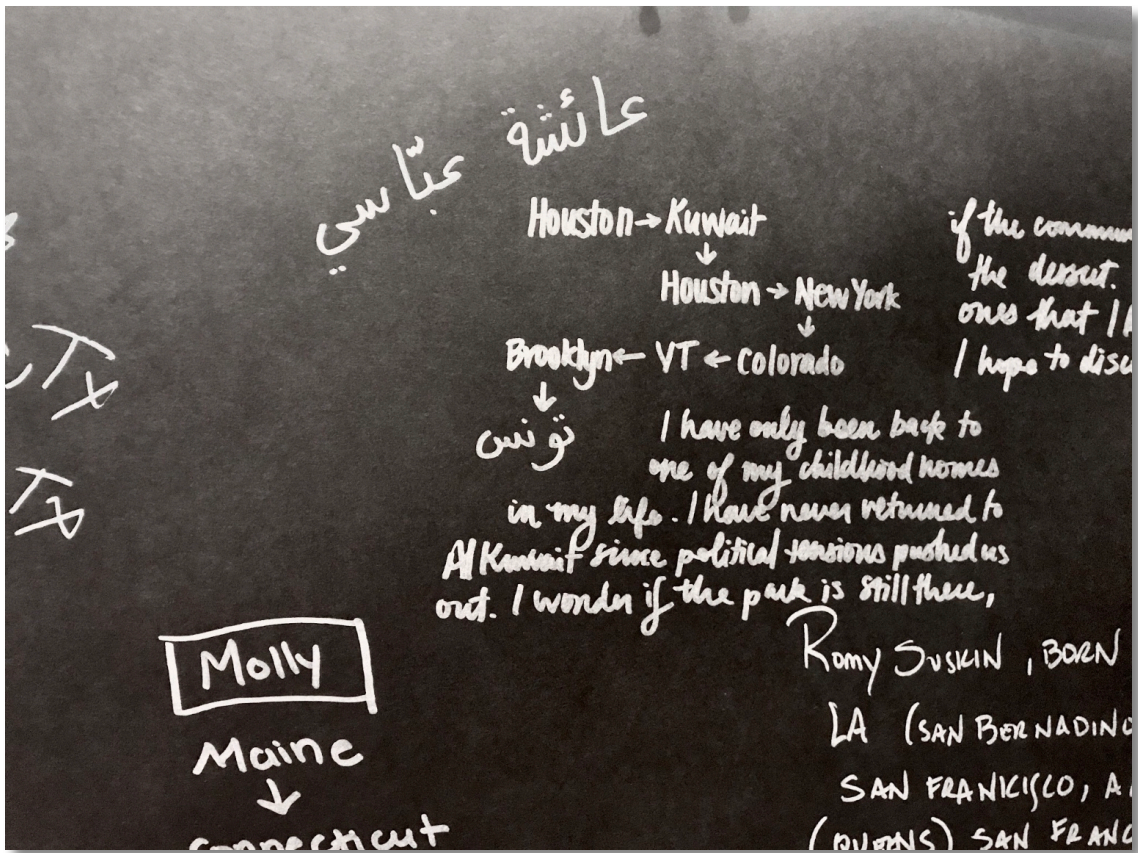 عائشة عبّاسي
Houston → Kuwait
↓
Houston → New York
↓
Brooklyn ← VT ← Colorado
↓
تونس
I have only been back to
one of my childhood homes
in my life. I have never returned to
Al Kuwait since political tensions pushed us
out. I wonder if the park is still there,
if the commun
the dersert.
ones that I
I hope to disc
TX
TX
Molly
Maine
↓
Connecticut
Romy Suskin, BORN
LA (SAN BERNADINO
SAN FRANKISCO, A
(QUEENS) SAN FRANC